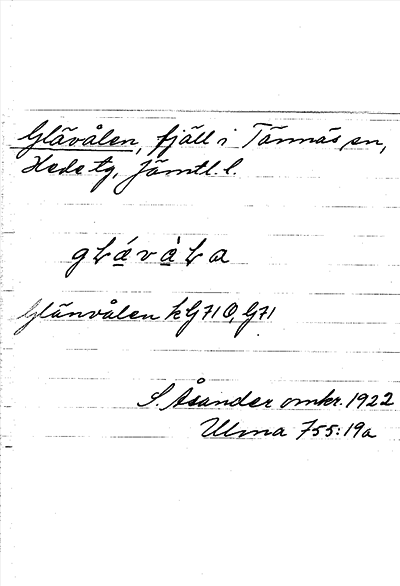 Glävålen, fjäll i Tännäs sn,
Hede tg, Jämtl. l.
Glänvålen kG71Ö, G71
S. Åsander omkr. 1922
Ulma 755:19a